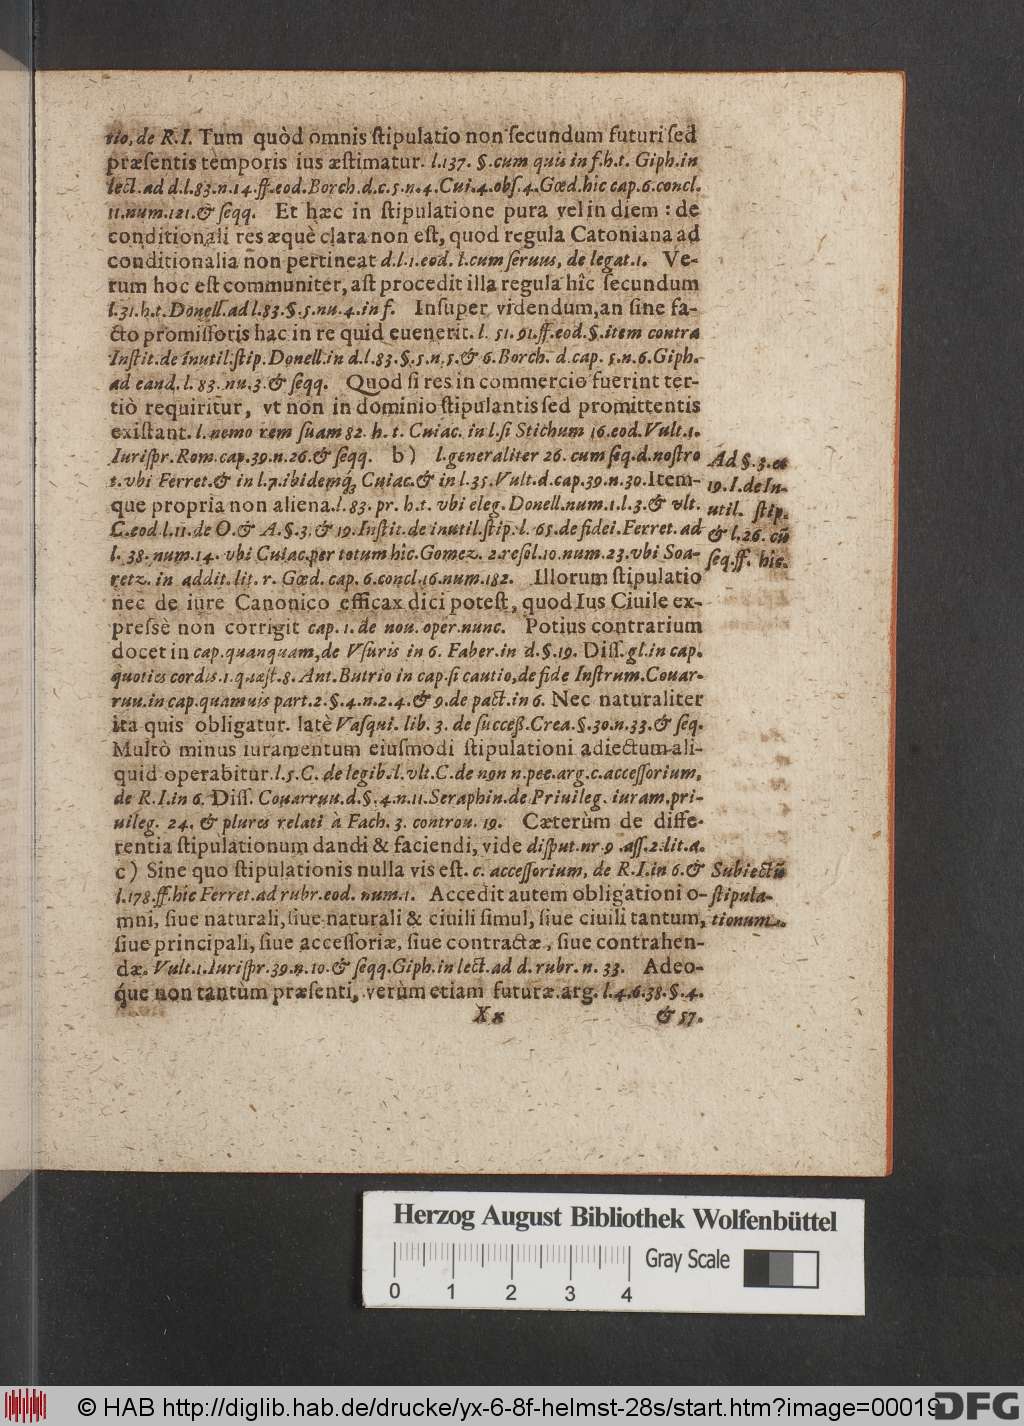 tio, de R.I. Tum quòd omnis ſtipulatio non ſecundum futuri ſed
præſentis temporis ius æſtimatur. l.137. §.cum quis in f.h.t. Giph.in
lect.ad d.l.83.n.14.ff.eod.Borch.d.c.5.n.4.Cui.4.obſ.4.Gœd.hic cap.6.concl.
11.num.121.& ſeqq. Et hæc in ſtipulatione pura vel in diem : de
conditionali res æquè clara non eſt, quod regula Catoniana ad
conditionalia non pertineat d.l.1.eod. l.cum ſeruus, de legat.1. Ve-
rum hoc eſt communiter, aſt procedit illa regula hîc ſecundum
l.31.h.t.Donell.ad l.83.§.5.nu.4.in f. Inſuper videndum,an ſine fa-
cto promiſſoris hac in re quid euenerit. l. 51. 91.ff.eod.§.item contra
Inſtit.de inutil.ſtip.Donell.in d.l.83.§.5.n.5.& 6.Borch. d.cap. 5.n.6.Giph.
ad eand.l.83.nu.3.& ſeqq. Quod ſi res in commercio fuerint ter-
tiò requiritur, vt non in dominio ſtipulantis ſed promittentis
exiſtant. l.nemo rem ſuam 82. h. t. Cuiac. in l.ſi Stichum 16.eod.Vult.1.
Iuriſpr.Rom.cap.39.n.26.& ſeqq. b) l.generaliter 26. cum ſeq.d.noſtro
t.vbi Ferret.& in l.7.ibidemq́; Cuiac.& in l.35.Vult.d.cap.39.n.30. Item-
que propria non aliena.l.83. pr. h.t. vbi eleg. Donell.num.1.l.3.& vlt.
C.eod l.11.de O.& A.§.3.& 19.Inſtit.de inutil.ſtip. l. 65.de fidei.Ferret.ad
l. 38. num.14. vbi Cuiac.per totum hîc.Gomez. 2.reſol.10.num.23.vbi Soa-
retz. in addit.lit. r. Gœd. cap. 6.concl.16.num.182. Illorum ſtipulatio
nec de iure Canonico efficax dici poteſt, quod Ius Ciuile ex-
preſsè non corrigit cap. 1. de nou. oper.nunc. Potius contrarium
docet in cap.quanquam,de Vſuris in 6. Faber.in d.§.19. Diſſ.gl.in cap.
quoties cordis.1.quæſt.8. Ant.Butrio in cap.ſi cautio,de fide Inſtrum.Couar-
ruu.in cap.quamuis part.2.§.4.n.2.4.& 9.de pact.in 6. Nec naturaliter
ita quis obligatur. latè Vaſqui. lib. 3. de ſucceß.Crea.§.30.n.33.& ſeq.
Multò minus iuramentum eiuſmodi ſtipulationi adiectum ali-
quid operabitur.l.5.C. de legib.l.vlt.C.de non n.pec.arg.c.acceſſorium,
de R.I.in 6. Diſſ. Couarruu.d.§.4.n.11.Seraphin.de Priuileg. iuram.pri-
uileg. 24. & plures relati à Fach. 3. controu. 19. Cæterùm de diffe-
rentia ſtipulationum dandi & faciendi, vide diſput.nr 9 .aſſ.2.lit.a.
c) Sine quo ſtipulationis nulla vis eſt. c. acceſſorium, de R.I.in 6.&
l.178.ff.hîc Ferret.ad rubr.eod. num.1. Accedit autem obligationi o-
mni, ſiue naturali, ſiue naturali & ciuili ſimul, ſiue ciuili tantum,
ſiue principali, ſiue acceſſoriæ, ſiue contractæ, ſiue contrahen-
dæ. Vult.1.Iuriſpr.39.n.10.& ſeqq.Giph.in lect.ad d.rubr. n. 33. Adeo-
q́ue non tantùm præſenti, verùm etiam futuræ.arg. l.4.6.38.§.4.
Xx & 57.
Ad §.3.et
19.I.de In-
util. ſtip.
& l.26. cũ
ſeq.ff. hîc.
Subiectũ
ſtipula-
tionum.
Herzog August Bibliothek Wolfenbüttel
Gray Scale
0 1 2 3 4
© HAB http://diglib.hab.de/drucke/yx-6-8f-helmst-28s/start.htm?image=00019
DFG